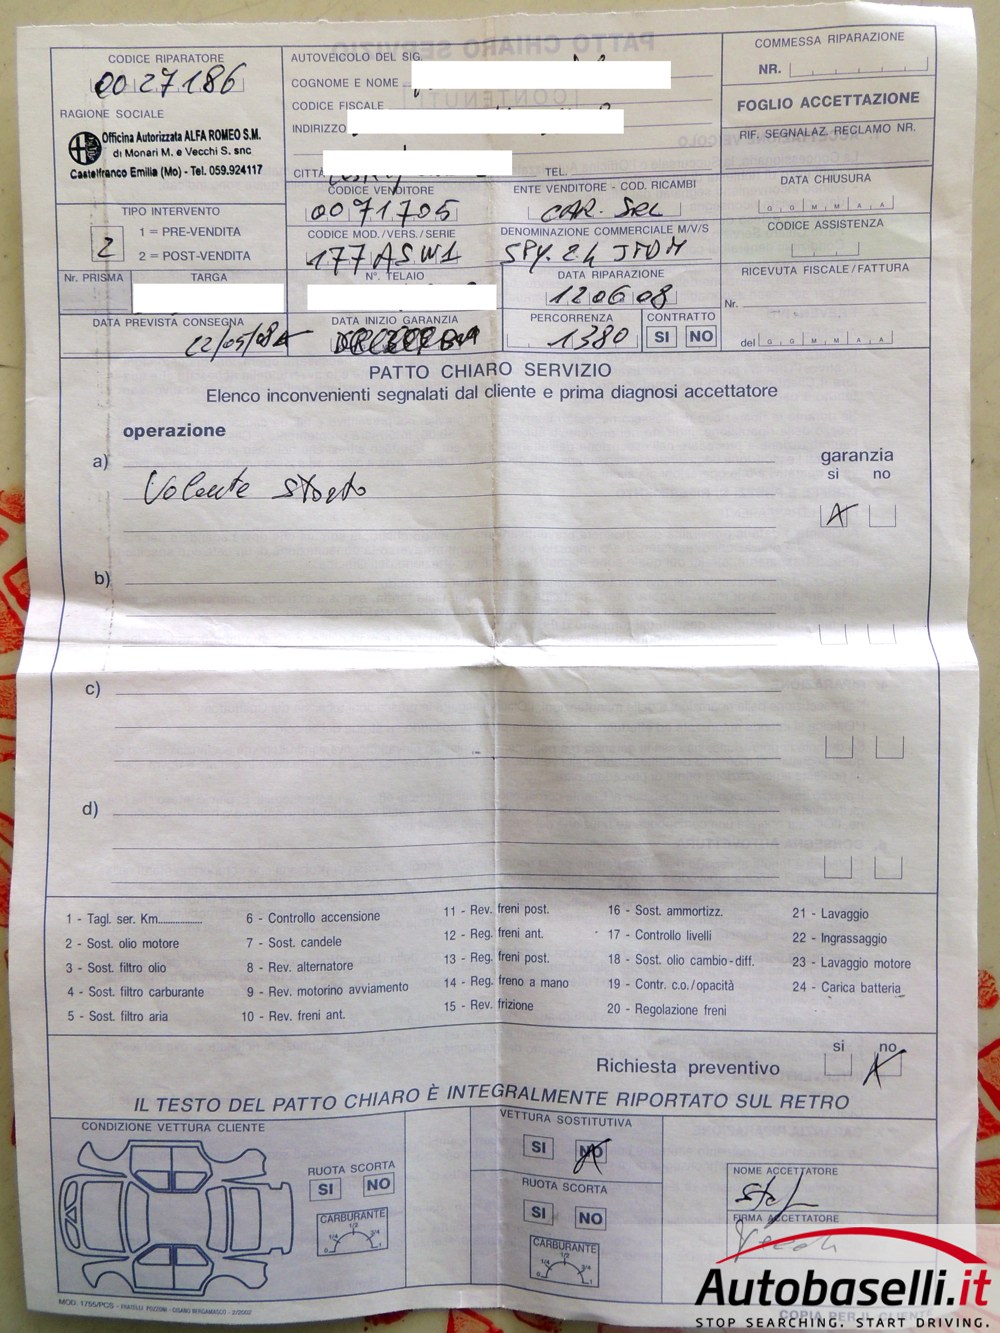 CODICE RIPARATORE
0027186
RAGIONE SOCIALE
Officina Autorizzata ALFA ROMEO S.M.
di Monari M. e Vecchi S. snc
Castelfranco Emilia (Mo) - Tel. 059.924117
AUTOVEICOLO DEL SIG.
COGNOME E NOME
CODICE FISCALE
INDIRIZZO
CITTÀ
TEL.
COMMESSA RIPARAZIONE
NR.
FOGLIO ACCETTAZIONE
RIF. SEGNALAZ. RECLAMO NR.
TIPO INTERVENTO
2
1 = PRE-VENDITA
2 = POST-VENDITA
CODICE VENDITORE
0071705
ENTE VENDITORE - COD. RICAMBI
CAR. SRL
DATA CHIUSURA
G G M M A A
CODICE MOD./VERS./SERIE
177ASW1
DENOMINAZIONE COMMERCIALE M/V/S
SPY. 2.4 JTDM
CODICE ASSISTENZA
Nr. PRISMA
TARGA
N°. TELAIO
DATA RIPARAZIONE
120608
RICEVUTA FISCALE/FATTURA
Nr.
del G G M M A A
DATA PREVISTA CONSEGNA
12/05/08
DATA INIZIO GARANZIA
PERCORRENZA
1380
CONTRATTO
SI NO
PATTO CHIARO SERVIZIO
Elenco inconvenienti segnalati dal cliente e prima diagnosi accettatore
operazione
garanzia
si no
a)
Volante storto
X
b)
c)
d)
1 - Tagl. ser. Km..................
2 - Sost. olio motore
3 - Sost. filtro olio
4 - Sost. filtro carburante
5 - Sost. filtro aria
6 - Controllo accensione
7 - Sost. candele
8 - Rev. alternatore
9 - Rev. motorino avviamento
10 - Rev. freni ant.
11 - Rev. freni post.
12 - Reg. freni ant.
13 - Reg. freni post.
14 - Reg. freno a mano
15 - Rev. frizione
16 - Sost. ammortizz.
17 - Controllo livelli
18 - Sost. olio cambio-diff.
19 - Contr. c.o./opacità
20 - Regolazione freni
21 - Lavaggio
22 - Ingrassaggio
23 - Lavaggio motore
24 - Carica batteria
Richiesta preventivo
si no
X
IL TESTO DEL PATTO CHIARO È INTEGRALMENTE RIPORTATO SUL RETRO
CONDIZIONE VETTURA CLIENTE
RUOTA SCORTA
SI NO
CARBURANTE
0 1/4 1/2 3/4 1
VETTURA SOSTITUTIVA
SI NO
RUOTA SCORTA
SI NO
CARBURANTE
0 1/4 1/2 3/4 1
NOME ACCETTATORE
FIRMA ACCETTATORE
MOD. 1755/POS - FRATELLI POZZONI - CISANO BERGAMASCO - 2/2002
COPIA PER IL CLIENTE
Autobaselli.it
STOP SEARCHING. START DRIVING.